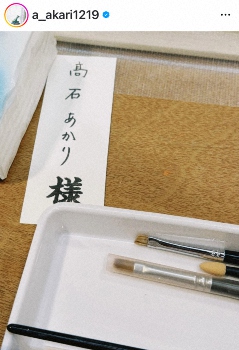 a_akari1219
髙石あかり
様